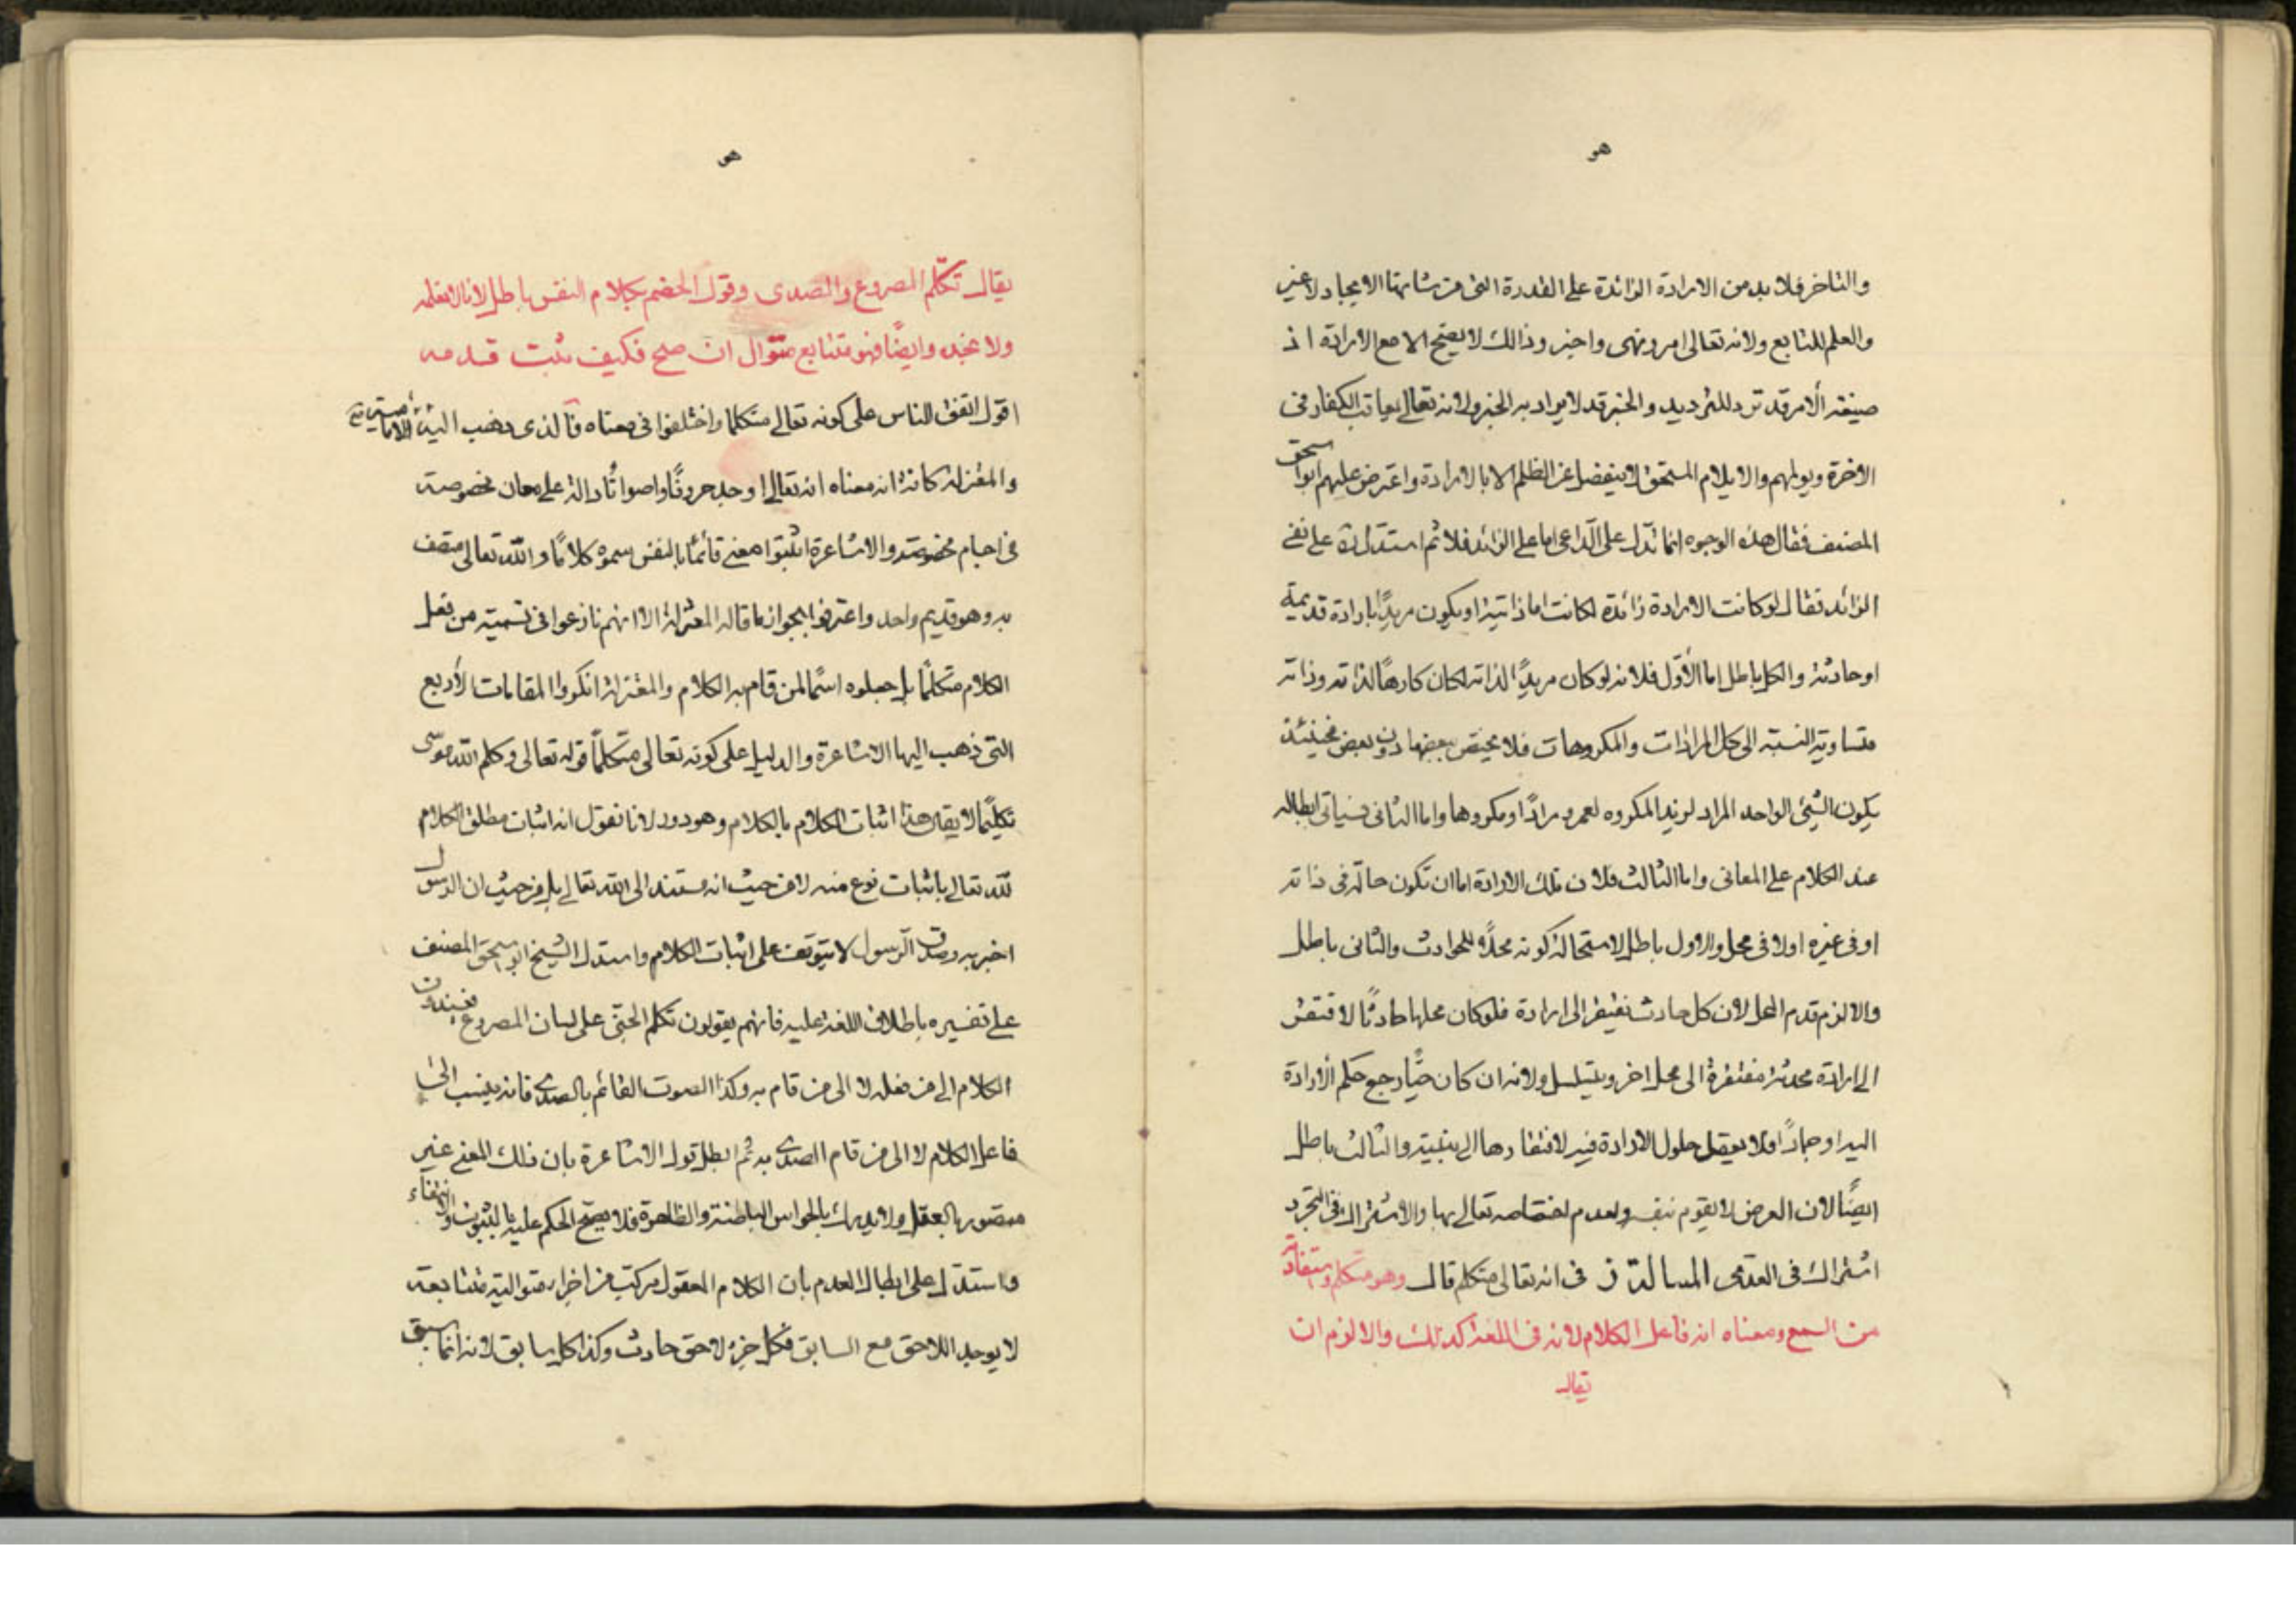 هو
والتاخر فلا بد من الارادة الزائدة على القدرة التى من شانها الايجاد لا غير
والعلم للتابع ولانه تعالى امر ونهى واخبر وذالك لا يصح الا مع الارادة اذ
صيغة الأمر قد ترد للتهديد والخبر قد لا يراد به الخبر ولانه تعالى يعاقب الكفار فى
الاخرة ويولمهم والايلام المستحق لا ينفصل عن الظلم الا بالارادة واعترض عليهم ابواسحق
المصنف فقال هذه الوجوه انما تدل على الداعى اما على الزائد فلا ثم استدل على نفى
الزائد فقال لو كانت الارادة زائدة لكانت اما ذاتية او يكون مريدًا بارادة قديمة
او حادثة والكل باطل اما الأول فلانه لو كان مريدًا لذاته لكان كارهًا لذاته وذاته
متساوية النسبة الى كل المرادات والمكروهات فلا يختص بعضها دون بعض فحينئذ
يكون الشيئ الواحد المراد لزيد المكروه لعمرو مرادًا ومكروها واما الثانى فسياتى ابطاله
عند الكلام على المعانى واما الثالث فلان تلك الارادة اما ان تكون حالة فى ذاته
او فى غيره اولا فى محل والاول باطل لاستحالة كونه محلًا للحوادث والثانى باطل
والا لزم قدم المحل لان كل حادث يفتقر الى ارادة فلو كان محلها حادثًا لافتقر
الى ارادة محدثة مفتقرة الى محل اخر ويتسلسل ولانه ان كان حيًا رجع حكم الأرادة
اليه او جمادًا فلا يعقل حلول الارادة فيه لافتقارها الى بنيته والثالث باطل
ايضًا لان العرض لا يقوم بنفسه ولعدم اختصاصه تعالى بها والاشتراك فى التجرد
اشتراك فى العدمى المسالة ز فى انه تعالى متكلم قال وهو متكلم ويستفاد
من السمع ومعناه انه فاعل الكلام لانه فى اللغة كذلك والا لزم ان
يقال
هو
يقال تكلم المصروع والصدى وقول الخصم بكلام النفس باطل لانا لا نعلمه
ولا نجده وايضًا فهو متتابع متوال ان صح فكيف يثبت قدمه
اقول اتفق الناس على كونه تعالى متكلما واختلفوا فى معناه فالذى ذهب اليه الامامية
والمعتزلة كافة ان معناه انه تعالى اوجد حروفًا واصواتًا دالة على معان مخصوصة
فى اجسام مخصوصة والاشاعرة اثبتوا معنى قائمًا بالنفس سموه كلامًا والله تعالى متصف
به وهو قديم واحد واعترفوا بجواز ما قاله المعتزلة الا انهم نازعوا فى تسمية من فعل
الكلام متكلمًا بل جعلوه اسمًا لمن قام به الكلام والمعتزلة انكروا المقامات الأربع
التى ذهب اليها الاشاعرة والدليل على كونه تعالى متكلمًا قوله تعالى وكلم الله موسى
تكليمًا لا يقال هذا اثبات الكلام بالكلام وهو دور لانا نقول انه اثبات مطلق الكلام
لله تعالى باثبات نوع منه لا من حيث انه مستند الى الله تعالى بل من حيث ان الرسول
اخبر به وصدق الرسول لا يتوقف على اثبات الكلام واستدل الشيخ ابو اسحق المصنف
على تفسيره باطلاق اللغة عليه فانهم يقولون تكلم الجنى على لسان المصروع فيسندون
الكلام الى من فعله لا الى من قام به وكذا الصوت القائم بالصدى فانه ينسب الى
فاعل الكلام لا الى من قام الصدى به ثم ابطل قول الاشاعرة بان ذلك المعنى غير
متصور بالعقل ولا يدرك بالحواس الباطنة والظاهرة فلا يصح الحكم عليه بالثبوت والانتفاء
واستدل على ابطال القدم بان الكلام المعقول مركب من اجزاء متوالية متتابعة
لا يوجد اللاحق مع السابق فكل جزء لاحق حادث وكذا كل سابق لانه انما سبق